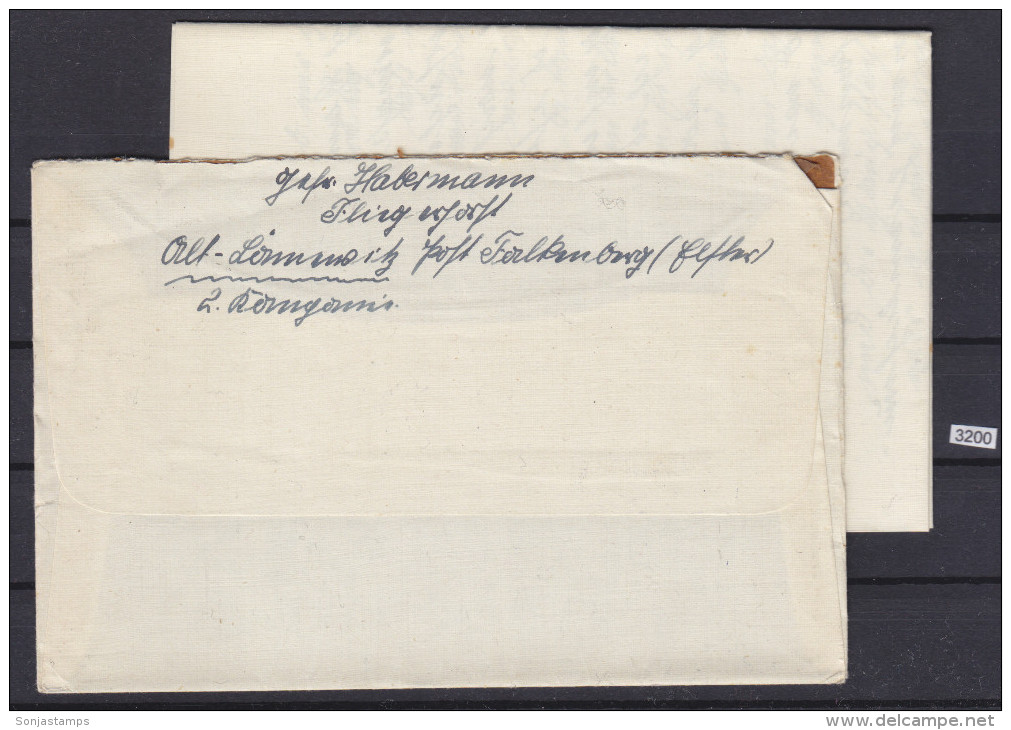 Gefr. Habermann
Fliegerhorst
Alt-Lönnewitz Post Falkenberg (Elster)
2. Kompanie.
3200
Sonjastamps
www.delcampe.net